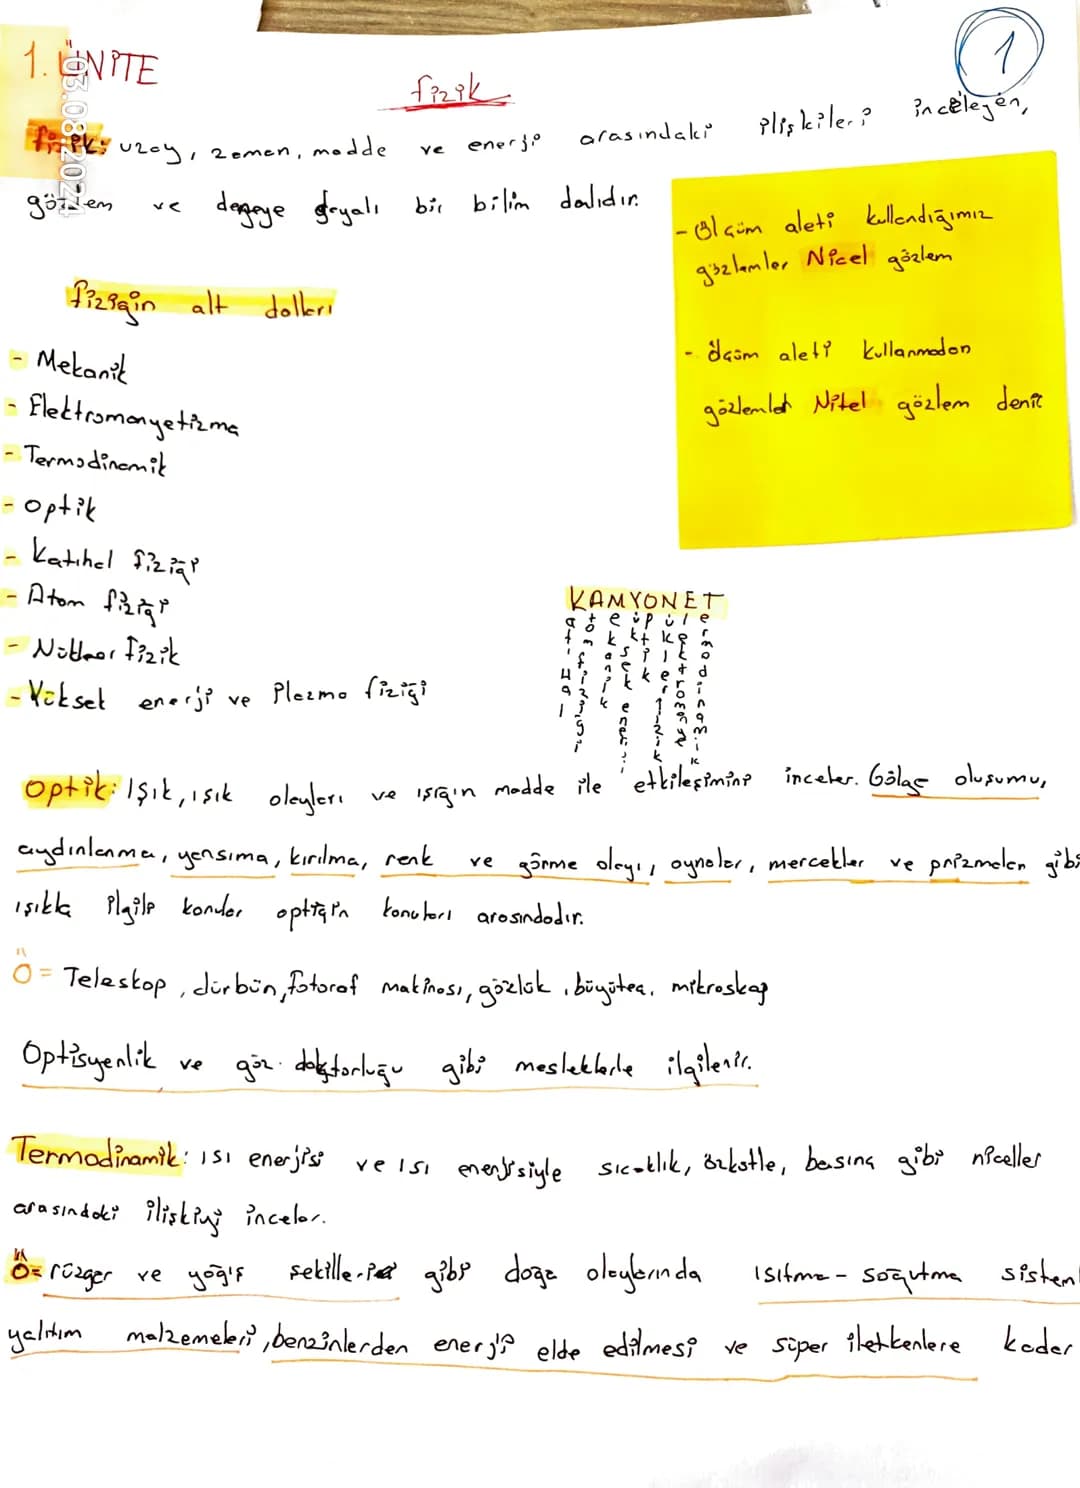 1. ÜNİTE
1
fizik
03.08.2024
fizik: uzay, zaman, madde ve enerji arasındaki ilişkileri inceleyen,
gözlem ve deneye dayalı bir bilim dalıdır.
- Ölçüm aleti kullandığımız
gözlemler Nicel gözlem
- ölçüm aleti kullanmadan
gözlemler Nitel gözlem denir
fiziğin alt dalları
- Mekanik
- Elektromanyetizma
- Termodinamik
- optik
- Katıhal fiziği
- Atom fiziği
- Nükleer fizik
- Yüksek enerji ve Plazma fiziği
KAMYONET
Optik: Işık, ışık olayları ve ışığın madde ile etkileşimini inceler. Gölge oluşumu,
aydınlanma, yansıma, kırılma, renk ve görme olayı, aynalar, mercekler ve prizmalar gibi
ışıkla ilgili konular optiğin konuları arasındadır.
Ö= Teleskop, dürbün, fotoraf makinası, gözlük, büyüteç, mikroskop
Optisyenlik ve göz doktorluğu gibi mesleklerle ilgilenir.
Termodinamik: ısı enerjisi ve ısı enerjisiyle sıcaklık, özkütle, basınç gibi niceller
arasındaki ilişkiyi inceler.
Ö= rüzgar ve yağış şekilleri gibi doğa olaylarında ısıtma - soğutma sistem
yalıtım malzemeleri, benzinlerden enerji elde edilmesi ve süper iletkenlere kadar